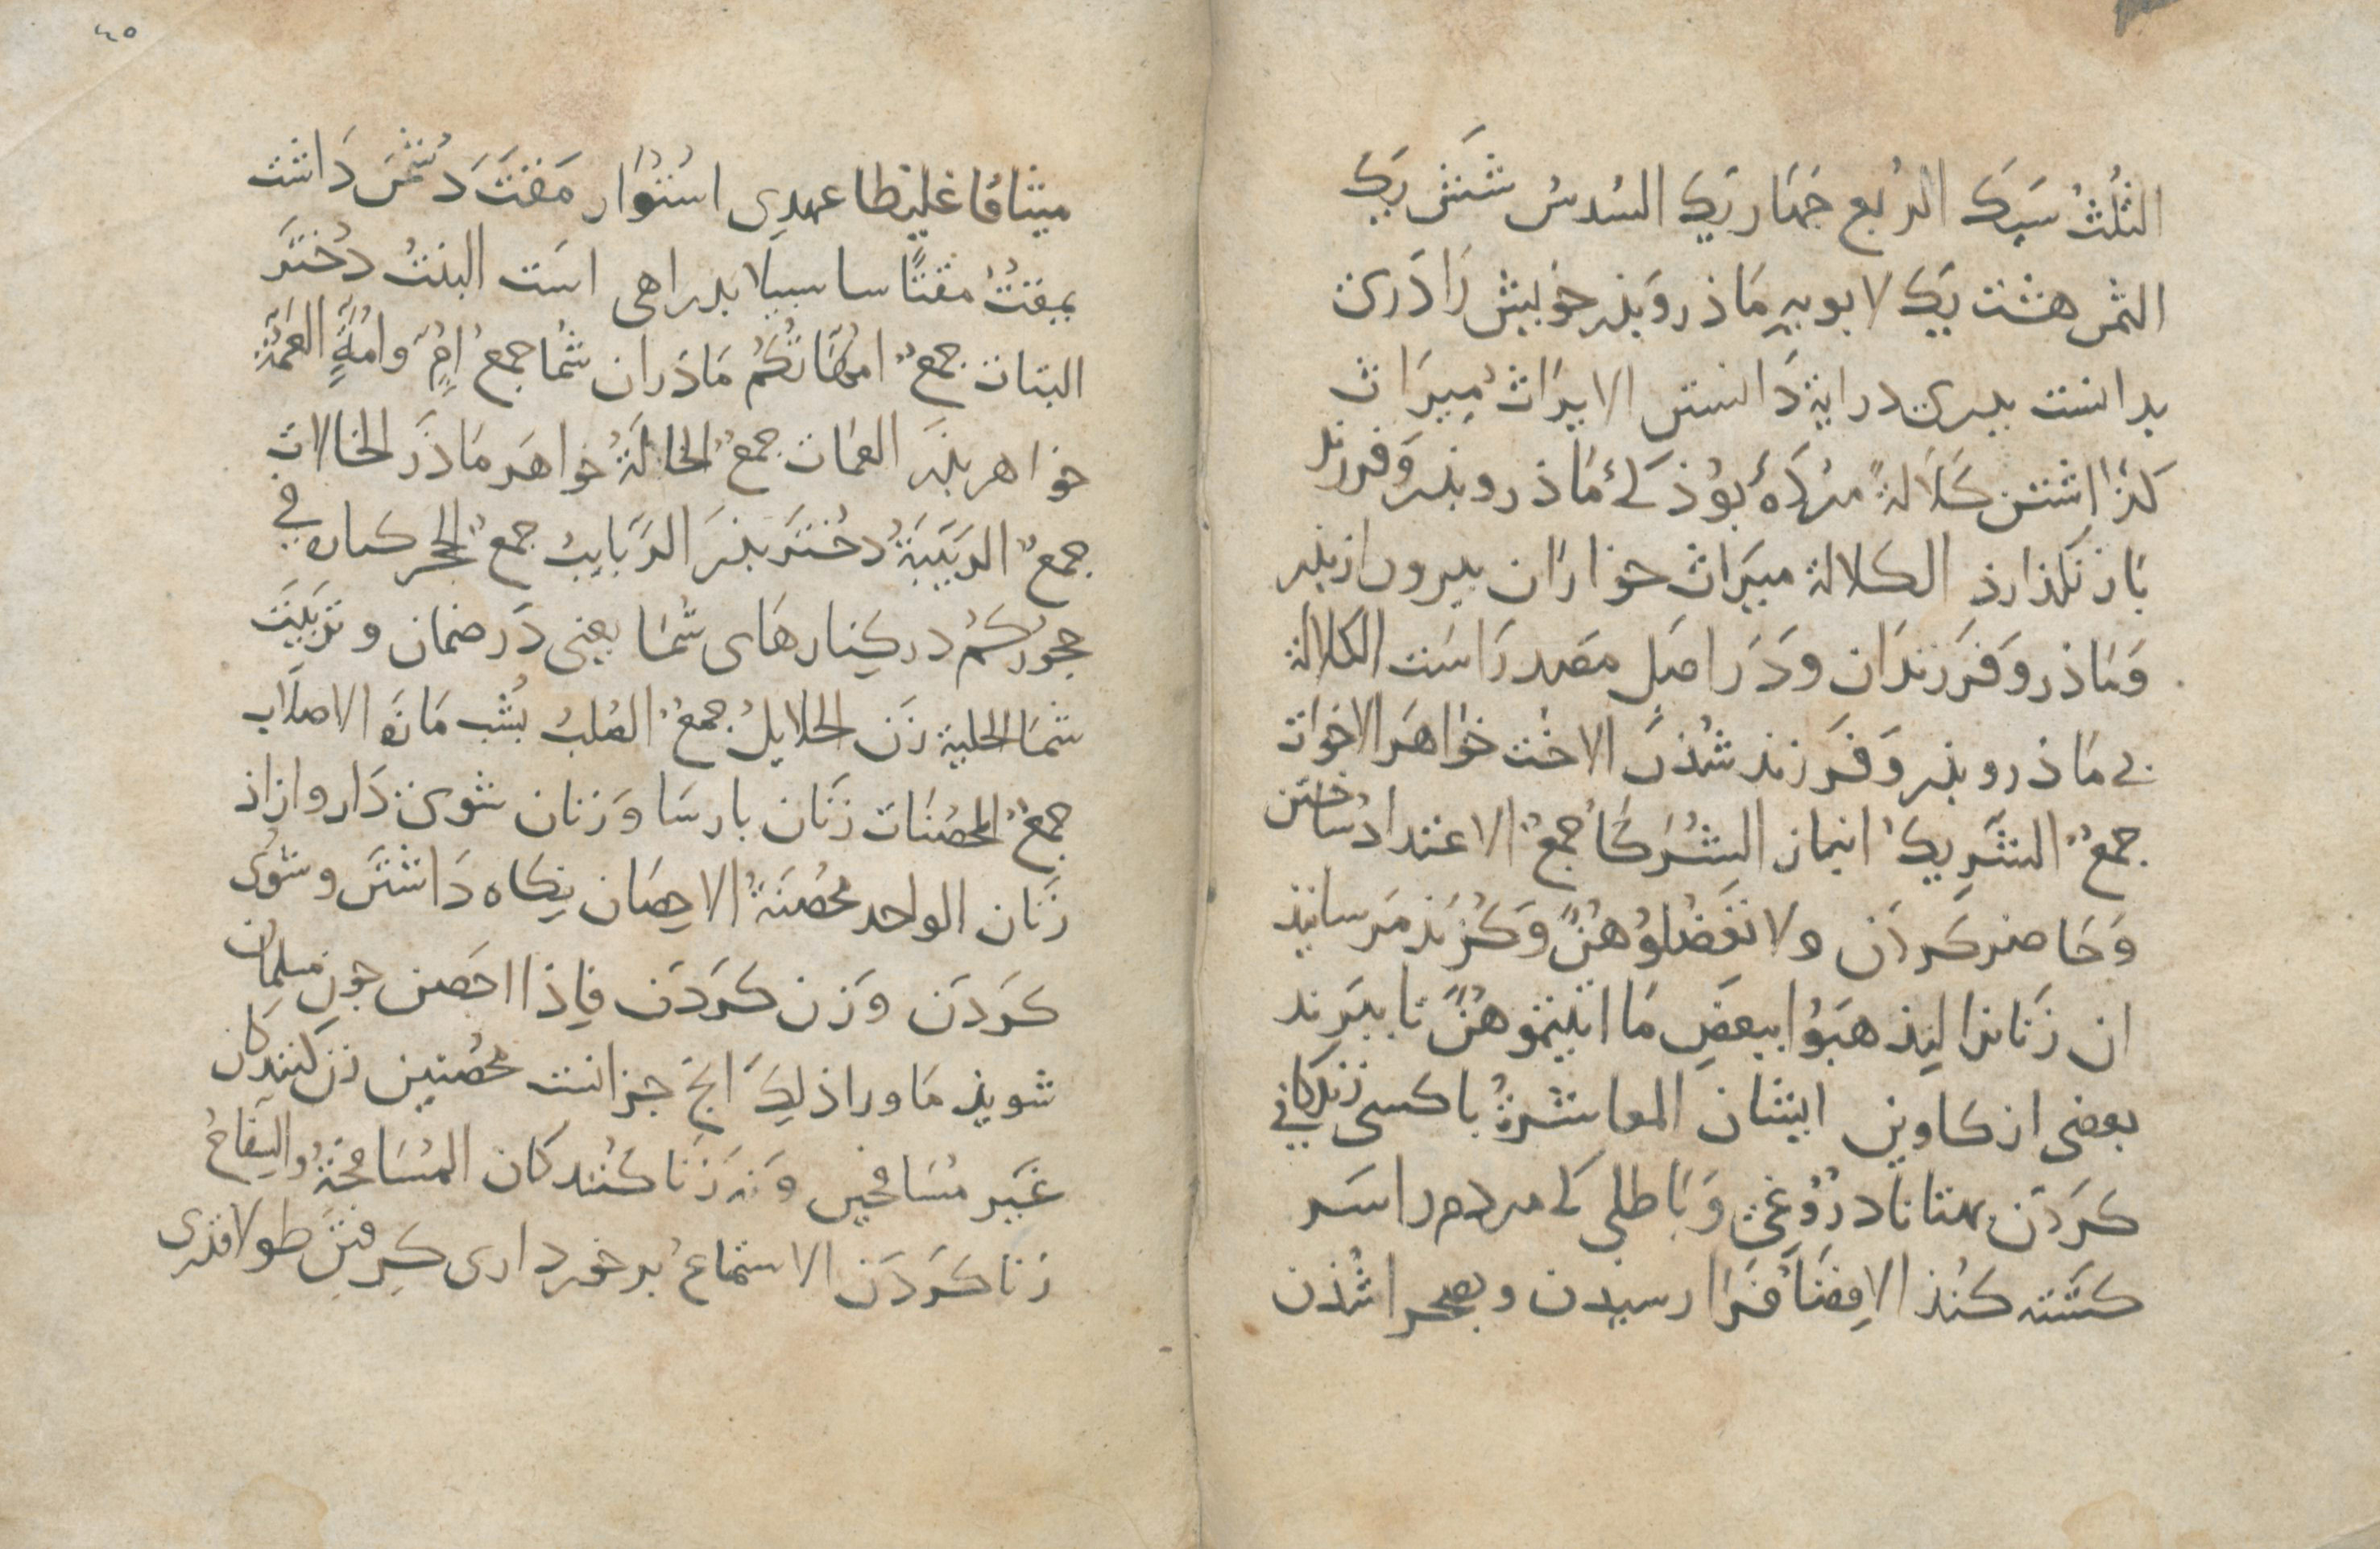 الثُلُثُ سَیَک الرُبع جَهَار یَک السُدسُ شَشْ یَک
الثمن هشت یَک لابویهِ مَاذر وَبذر خویش رَا دَری
بدانست بدری درایة دَانستن الایرَاثُ مِیرَاث
کذَاشتن کَلَالةً مُردَهٔ بوُذ کی مَاذر وبذر وَفرزند
بَاز نکذارذ الکلالة میرَاث خوَارَان بیرون از بذر
وَمَاذر وَفَرزندَان ودَر اصلِ مصدر رَاسَت الکلالة
بی مَاذر وبذر وَفَرزند شُذنَ الاخت خوَاهَر الاخوات
جمعٌ الشَریکُ انباز الشُرَکَا جمعٌ الاعتدادُ ساختن
وَحَاضر کَردَن ولا تَعضُلوُهُنَّ وَکُزَند مَرسانیذ
ان زَنانرا لِیَذهَبوُا ببعَضِ مَا اتیتموهُنَّ تا ببَرند
بعضی از کاوین ایشان المعاشرةُ با کسی زندکانی
کَردَن بهتانا دروُغی وَبَاطلی کی مردم را سَر
کشته کنُذ الاِفضَأ فَرَا رسیدن وبصحرا شُذن
٤٥
میثاقًا غلیظا عهدِی اسُتوُار مَقتَ دَشمَن دَاشت
یمقتُ مقتًا سا سبیلًا بدراهی است البنتُ دُختَر
البنات جمعٌ امهَّاتُکُم مَاذَران شُما جمعُ اُمٍّ وامُّهَةٍ العَمَّةُ
خواهر بذَر العمَات جمعٌ الخالَةُ خواهَر مَاذَر الخالات
جمعٌ الرَبیبَةُ دخُتَر بذَر الرَبایبُ جمعٌ الحجر کناره فی
حجورکُم در کِنارهَای شُمَا یعنی دَر ضمان وتربیَت
شمَا الحلیلة زَن الحلایلُ جمعٌ الصُلبُ بُشْت مَازه الاصلَاب
جمعٌ المحصَنات زَنَان بارسَا وَزنان شوی دَار وازاذ
زَنان الواحد محُصَنةُ الاحِصَان نکاه دَاشتَن وشوُی
کَردَن وَزن کَردَن فَاِذا احَصِن جون مسلمان
شویذ مَا ورا ذلِکَ انجَ جز انست محُصنین زَن کنندکان
غَیر مُسَافحین وَنه زَنَا کنُندکان المُسَافحةُ والسِفاحُ
زَنا کَردَن الاستمتاعُ برخوردارى کِرِفتَن طولا قدرى